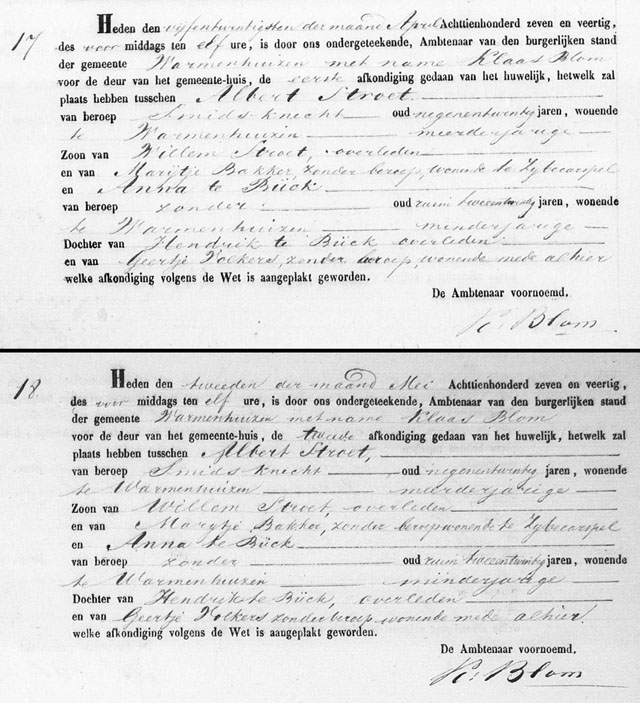 17 Heden den vijfentwintigsten der maand April Achttienhonderd zeven en veertig,
des voor middags ten elf ure, is door ons ondergeteekende, Ambtenaar van den burgerlijken stand
der gemeente Warmenhuizen met name Klaas Blom
voor de deur van het gemeente-huis, de eerste afkondiging gedaan van het huwelijk, hetwelk zal
plaats hebben tusschen Albert Stroet
van beroep Smidsknecht oud negenentwintig jaren, wonende
te Warmenhuizen meerderjarige
Zoon van Willem Stroet, overleden
en van Marijtje Bakker, zonder beroep, wonende te Zybecarspel
en Anna te Bück
van beroep zonder oud ruim tweeentwintig jaren, wonende
te Warmenhuizen minderjarige
Dochter van Hendrik te Bück overleden
en van Geertje Volkers, zonder beroep, wonende mede alhier
welke afkondiging volgens de Wet is aangeplakt geworden.
De Ambtenaar voornoemd.
K. Blom
18. Heden den tweeden der maand Mei Achttienhonderd zeven en veertig,
des voor middags ten elf ure, is door ons ondergeteekende, Ambtenaar van den burgerlijken stand
der gemeente Warmenhuizen met name Klaas Blom
voor de deur van het gemeente-huis, de tweede afkondiging gedaan van het huwelijk, hetwelk zal
plaats hebben tusschen Albert Stroet,
van beroep Smidsknecht oud negenentwintig jaren, wonende
te Warmenhuizen meerderjarige
Zoon van Willem Stroet, overleden
en van Marytje Bakker, zonder beroep wonende te Zybecarspel
en Anna te Bück
van beroep zonder oud ruim tweeentwintig jaren, wonende
te Warmenhuizen minderjarige
Dochter van Hendrik te Bück, overleden
en van Geertje Volkers zonder beroep wonende mede alhier.
welke afkondiging volgens de Wet is aangeplakt geworden.
De Ambtenaar voornoemd.
K. Blom